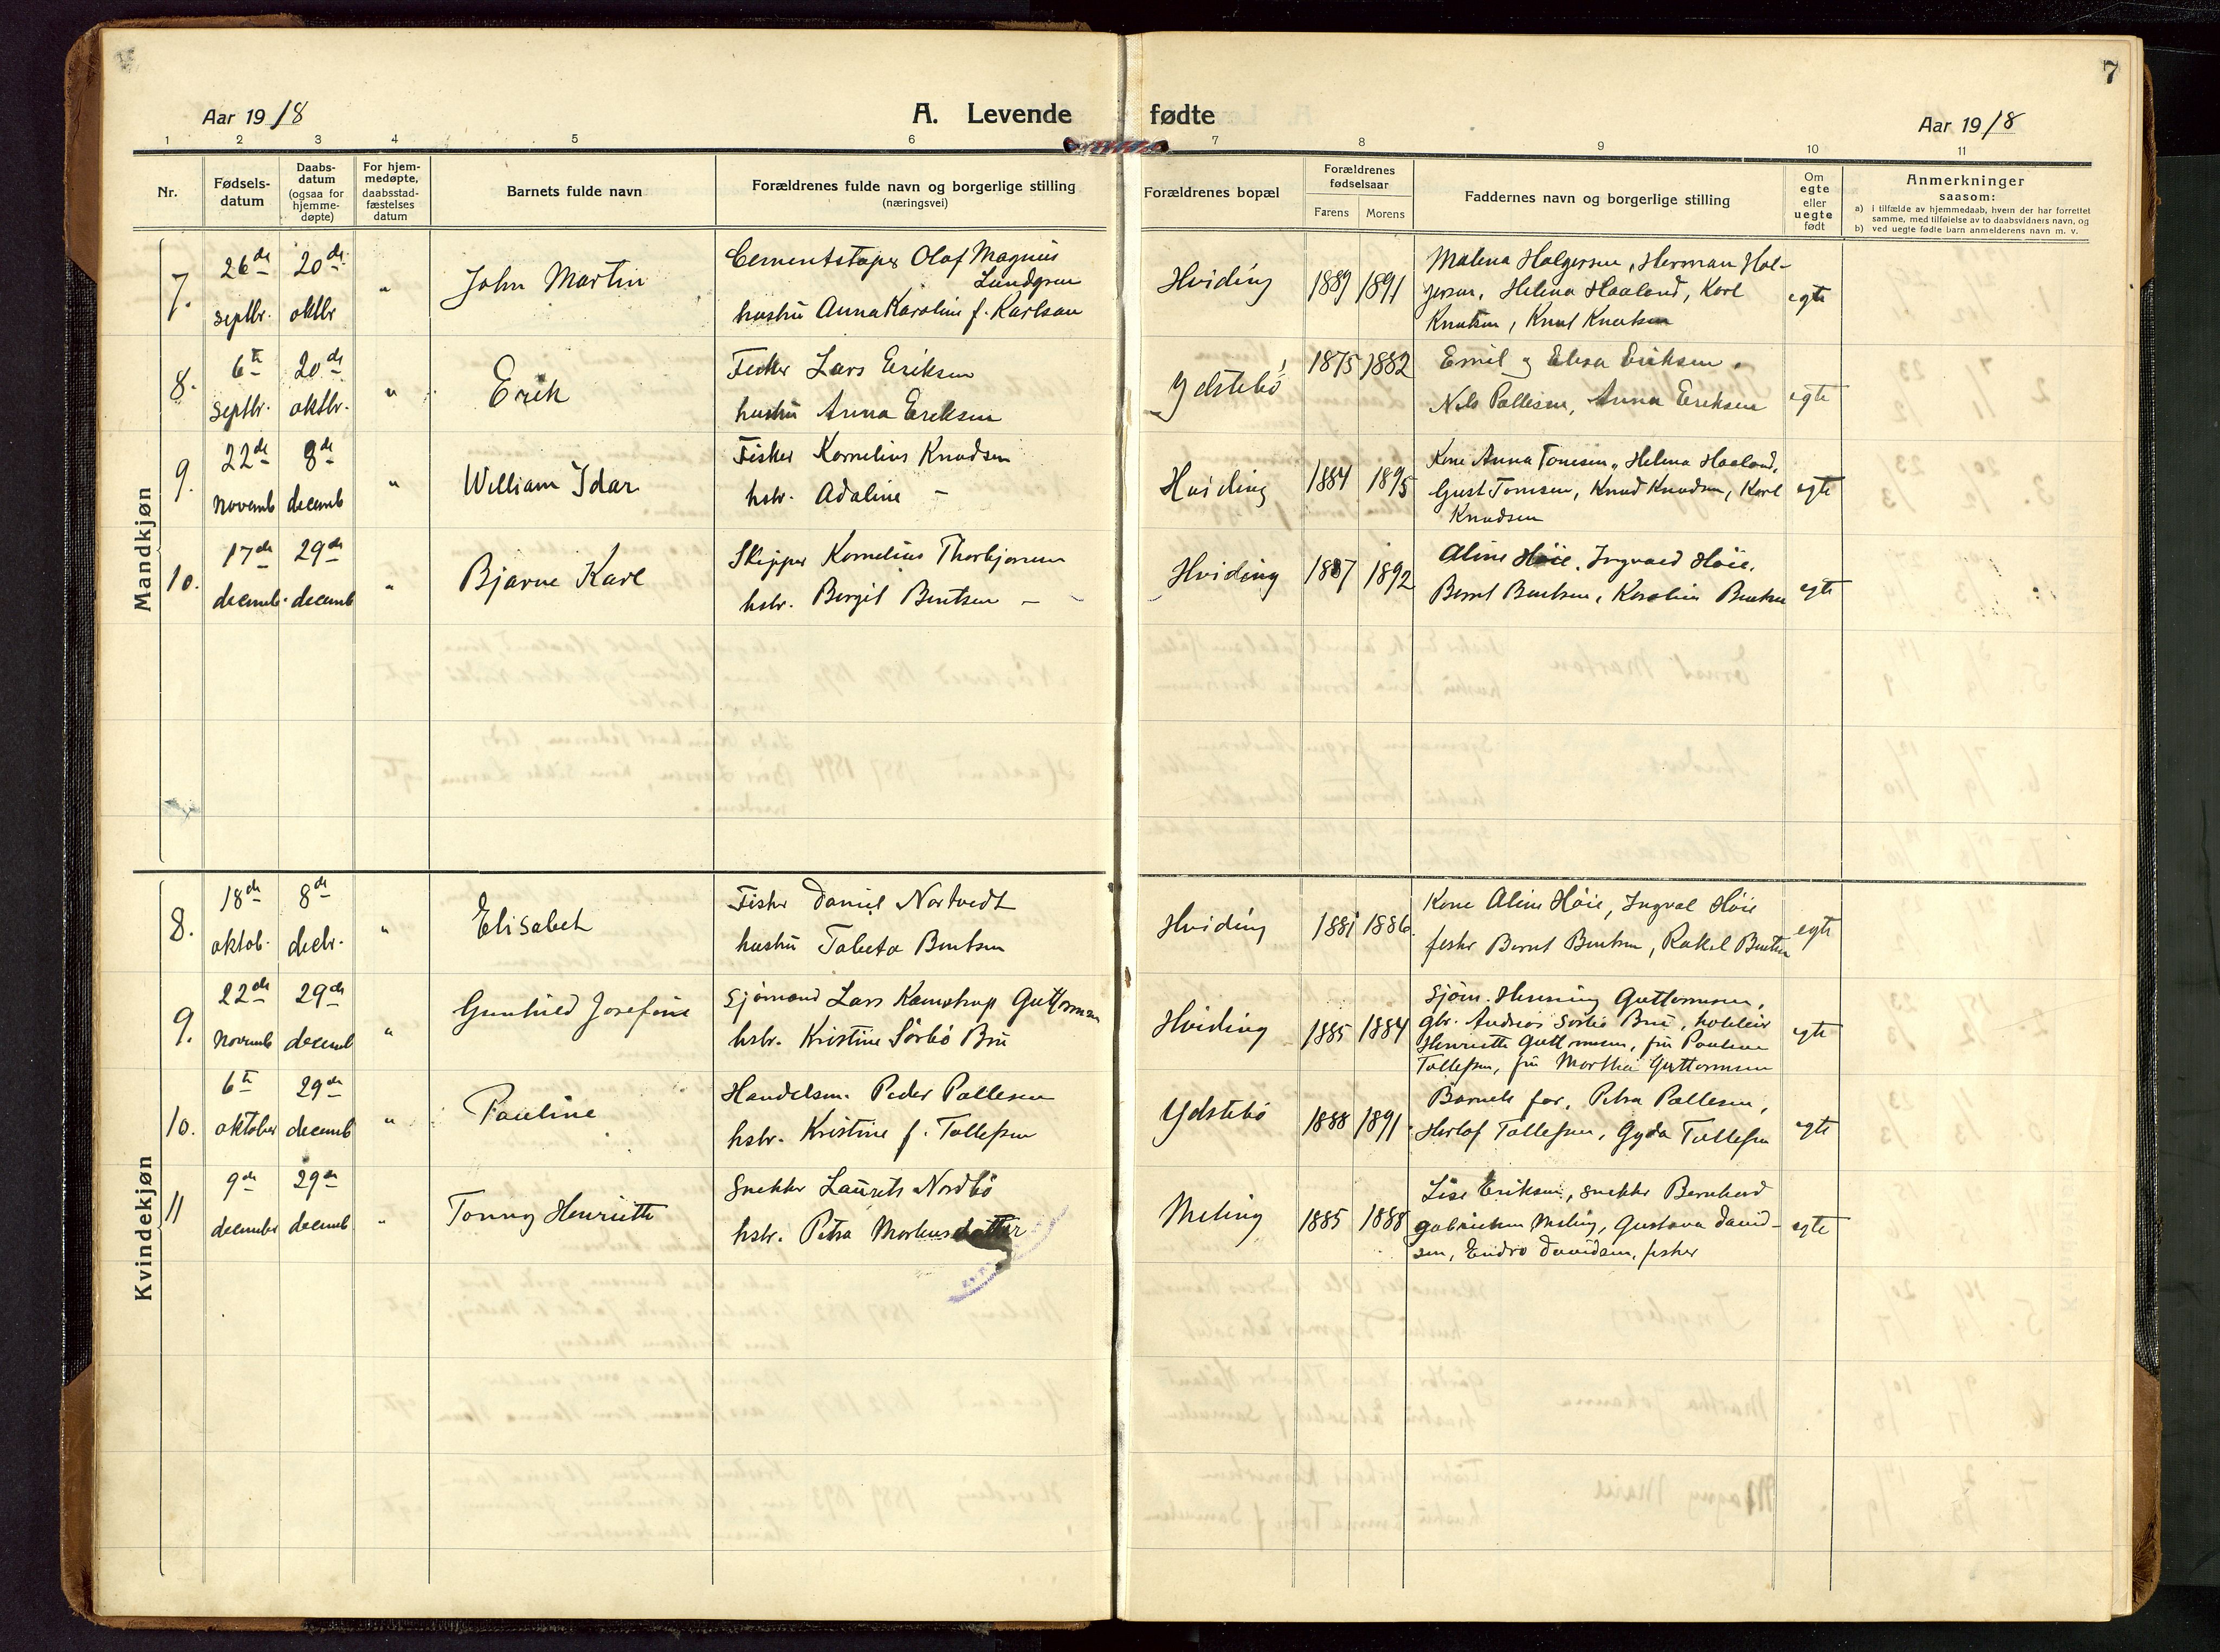 7
Aar 1918
A. Levende fødte
Aar 1918
1 2 3 4 5 6 7 8 9 10 11
Nr.
Fødsels-
datum
Daabs-
datum
(ogsaa for
hjemme-
døpte)
For hjem-
medøpte,
daabsstad-
fæstelses
datum
Barnets fulde navn
Forældrenes fulde navn og borgerlige stilling
(næringsvei)
Forældrenes bopæl
Forældrenes
fødselsaar
Farens Morens
Faddernes navn og borgerlige stilling
Om
egte
eller
uegte
født
Anmerkninger
saasom:
a) i tilfælde av hjemmedaab, hvem der har forrettet
samme, med tilføielse av to daabsvidners navn, og
b) ved uegte fødte barn anmelderens navn m. v.
Mandkjøn
7.
26de
septbr.
20de
oktbr
"
John Martin
Cementstøper Olaf Magnus
Lundgren
hustru Anna Karoline f. Karlsen
Hviding
1889 1891
Malena Holgersen, Herman Hol-
gersen, Helena Haaland, Karl
Knutsen, Knut Knutsen
egte
8.
6te
septbr.
20de
oktbr.
"
Erik
Fisker Lars Eriksen
hustru Anna Eriksen
Ydstebö
1875 1882
Emil og Elisa Eriksen.
Nils Pallesen, Anna Eriksen
egte
9.
22de
novemb
8de
decemb
"
William Idar
Fisker Kornelius Knudsen
hstr. Adaline –
Hviding
1884 1895
Kone Anna Tonnesen, Helena Haaland,
Gust Tonnesen, Knud Knudsen, Karl
Knudsen
egte
10.
17de
decemb.
29de
decemb
"
Bjarne Karl
Skipper Kornelius Thorbjørnsen
hstr. Bergit Bentsen –
Hviding
1887 1892
Aline Höie, Ingvald Höie,
Bernt Bentsen, Karolin Bentsen
egte
Kvindekjøn
8.
18de
oktob.
8de
decbr.
"
Elisabet
Fisker Daniel Nortvedt
hustru Tabeta Bentsen
Hviding
1881 1886.
Kone Aline Höie, Ingval Höie
fisker Bernt Bentsen, Rakel Bentsen
egte
9.
22de
novemb
29de
decemb
"
Gunhild Josefine
Sjömand Lars Kamstrup Guttormsen
hstr. Kristine Sörbö Bru
Hviding
1885 1884
Sjöm. Henning Guttormsen,
gbr. Andreas Sörbö Bru,
Henriette Guttormsen, fru Pauline
Tollefsen, fru Martha Guttormsen
egte
10.
6te
oktober
29de
decemb
"
Pauline
Handelsm. Peder Pallesen
hstr. Kristine f. Tollefsen
Ydstebö
1888 1891
Barnets far, Petra Pallesen,
Herlof Tollefsen, Gyda Tollefsen
egte
11
9de
decembr
29de
decemb
"
Tonny Henriette
Snekker Laurits Nordbö
hstr. Petra Mortensdatter
Meling
1885 1888
Lise Eriksen, snekker Bernhard
Gabrielsen Meling, Gustava David-
sen, Endre Davidsen, fisker
egte